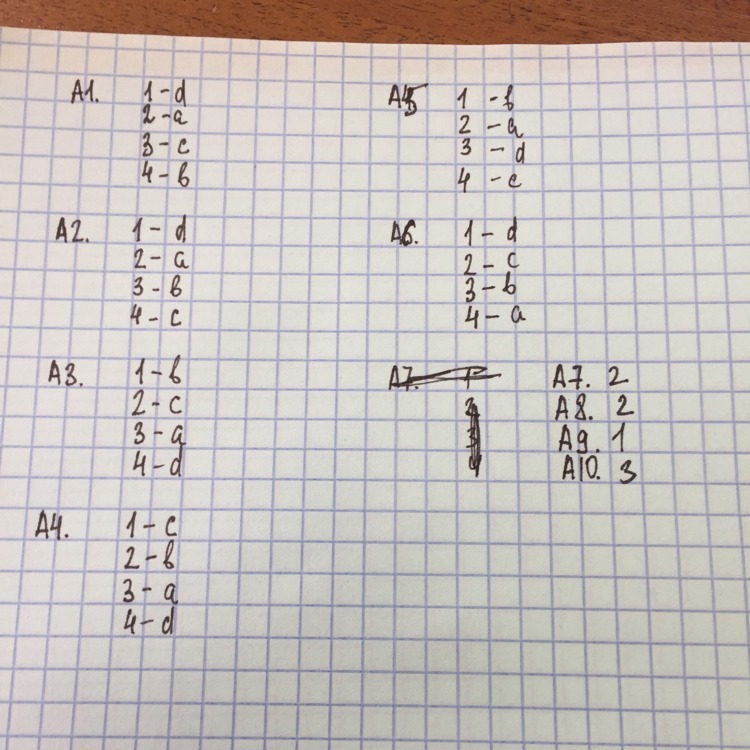 A1. 1 - d
2 - a
3 - c
4 - b
A2. 1 - d
2 - a
3 - b
4 - c
A3. 1 - b
2 - c
3 - a
4 - d
A4. 1 - c
2 - b
3 - a
4 - d
A5 1 - b
2 - a
3 - d
4 - c
A6. 1 - d
2 - c
3 - b
4 - a
A7. 1
2
3
4
A7. 2
A8. 2
A9. 1
A10. 3